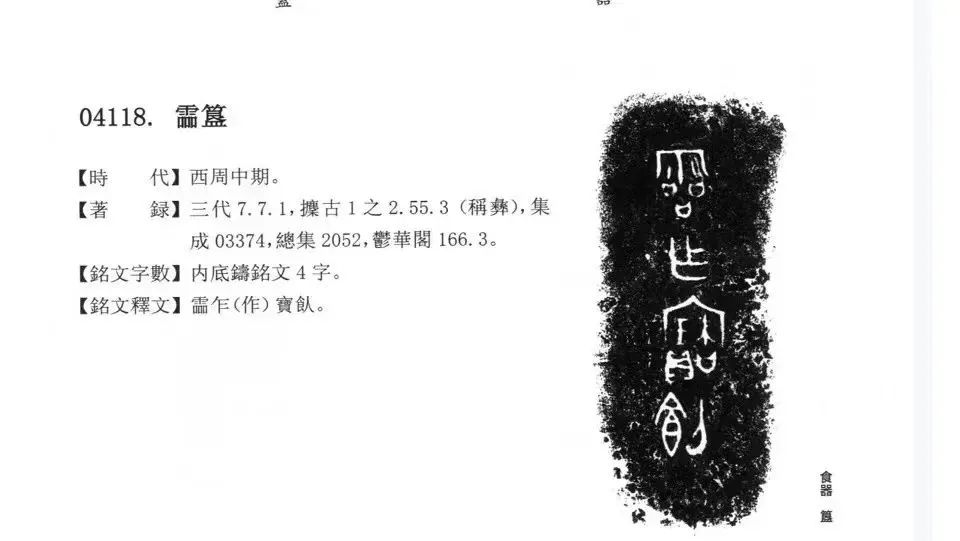 04118. 霝簋
【時　　代】西周中期。
【著　　録】三代 7.7.1，攈古 1 之 2.55.3（稱彝），集
成 03374，總集 2052，鬱華閣 166.3。
【銘文字數】内底鑄銘文 4 字。
【銘文釋文】霝乍（作）寶飤。
霝乍寶飤
食器 簋